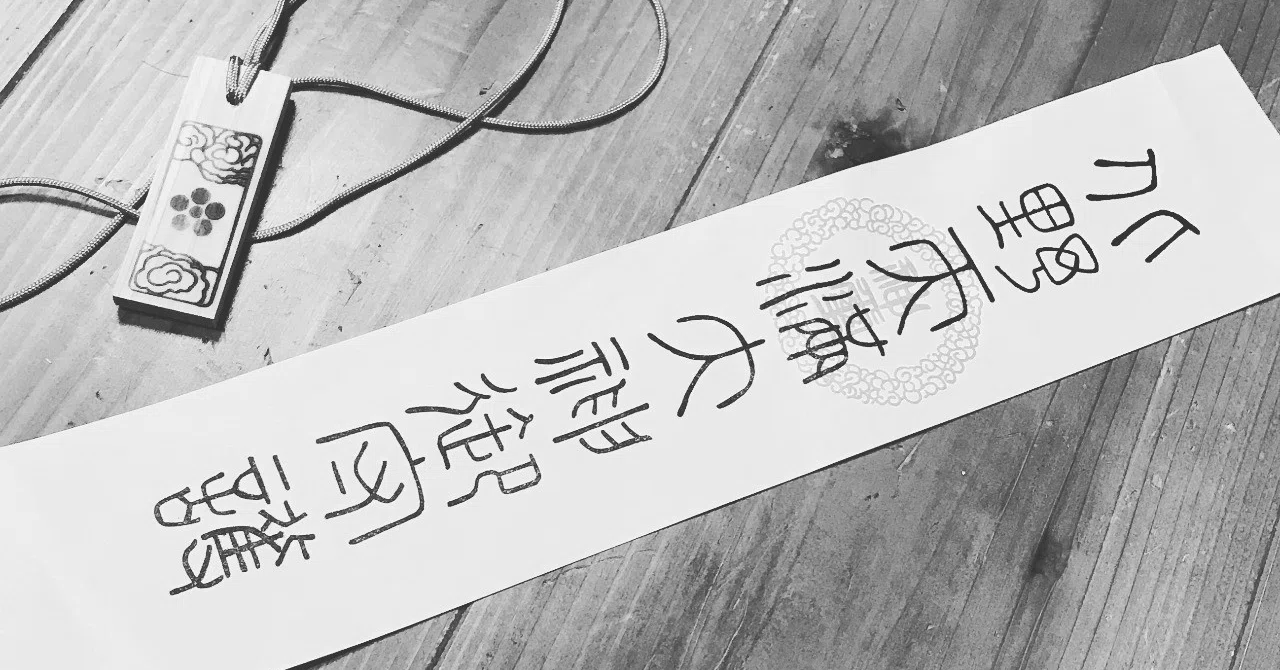 北野天滿大神御守護